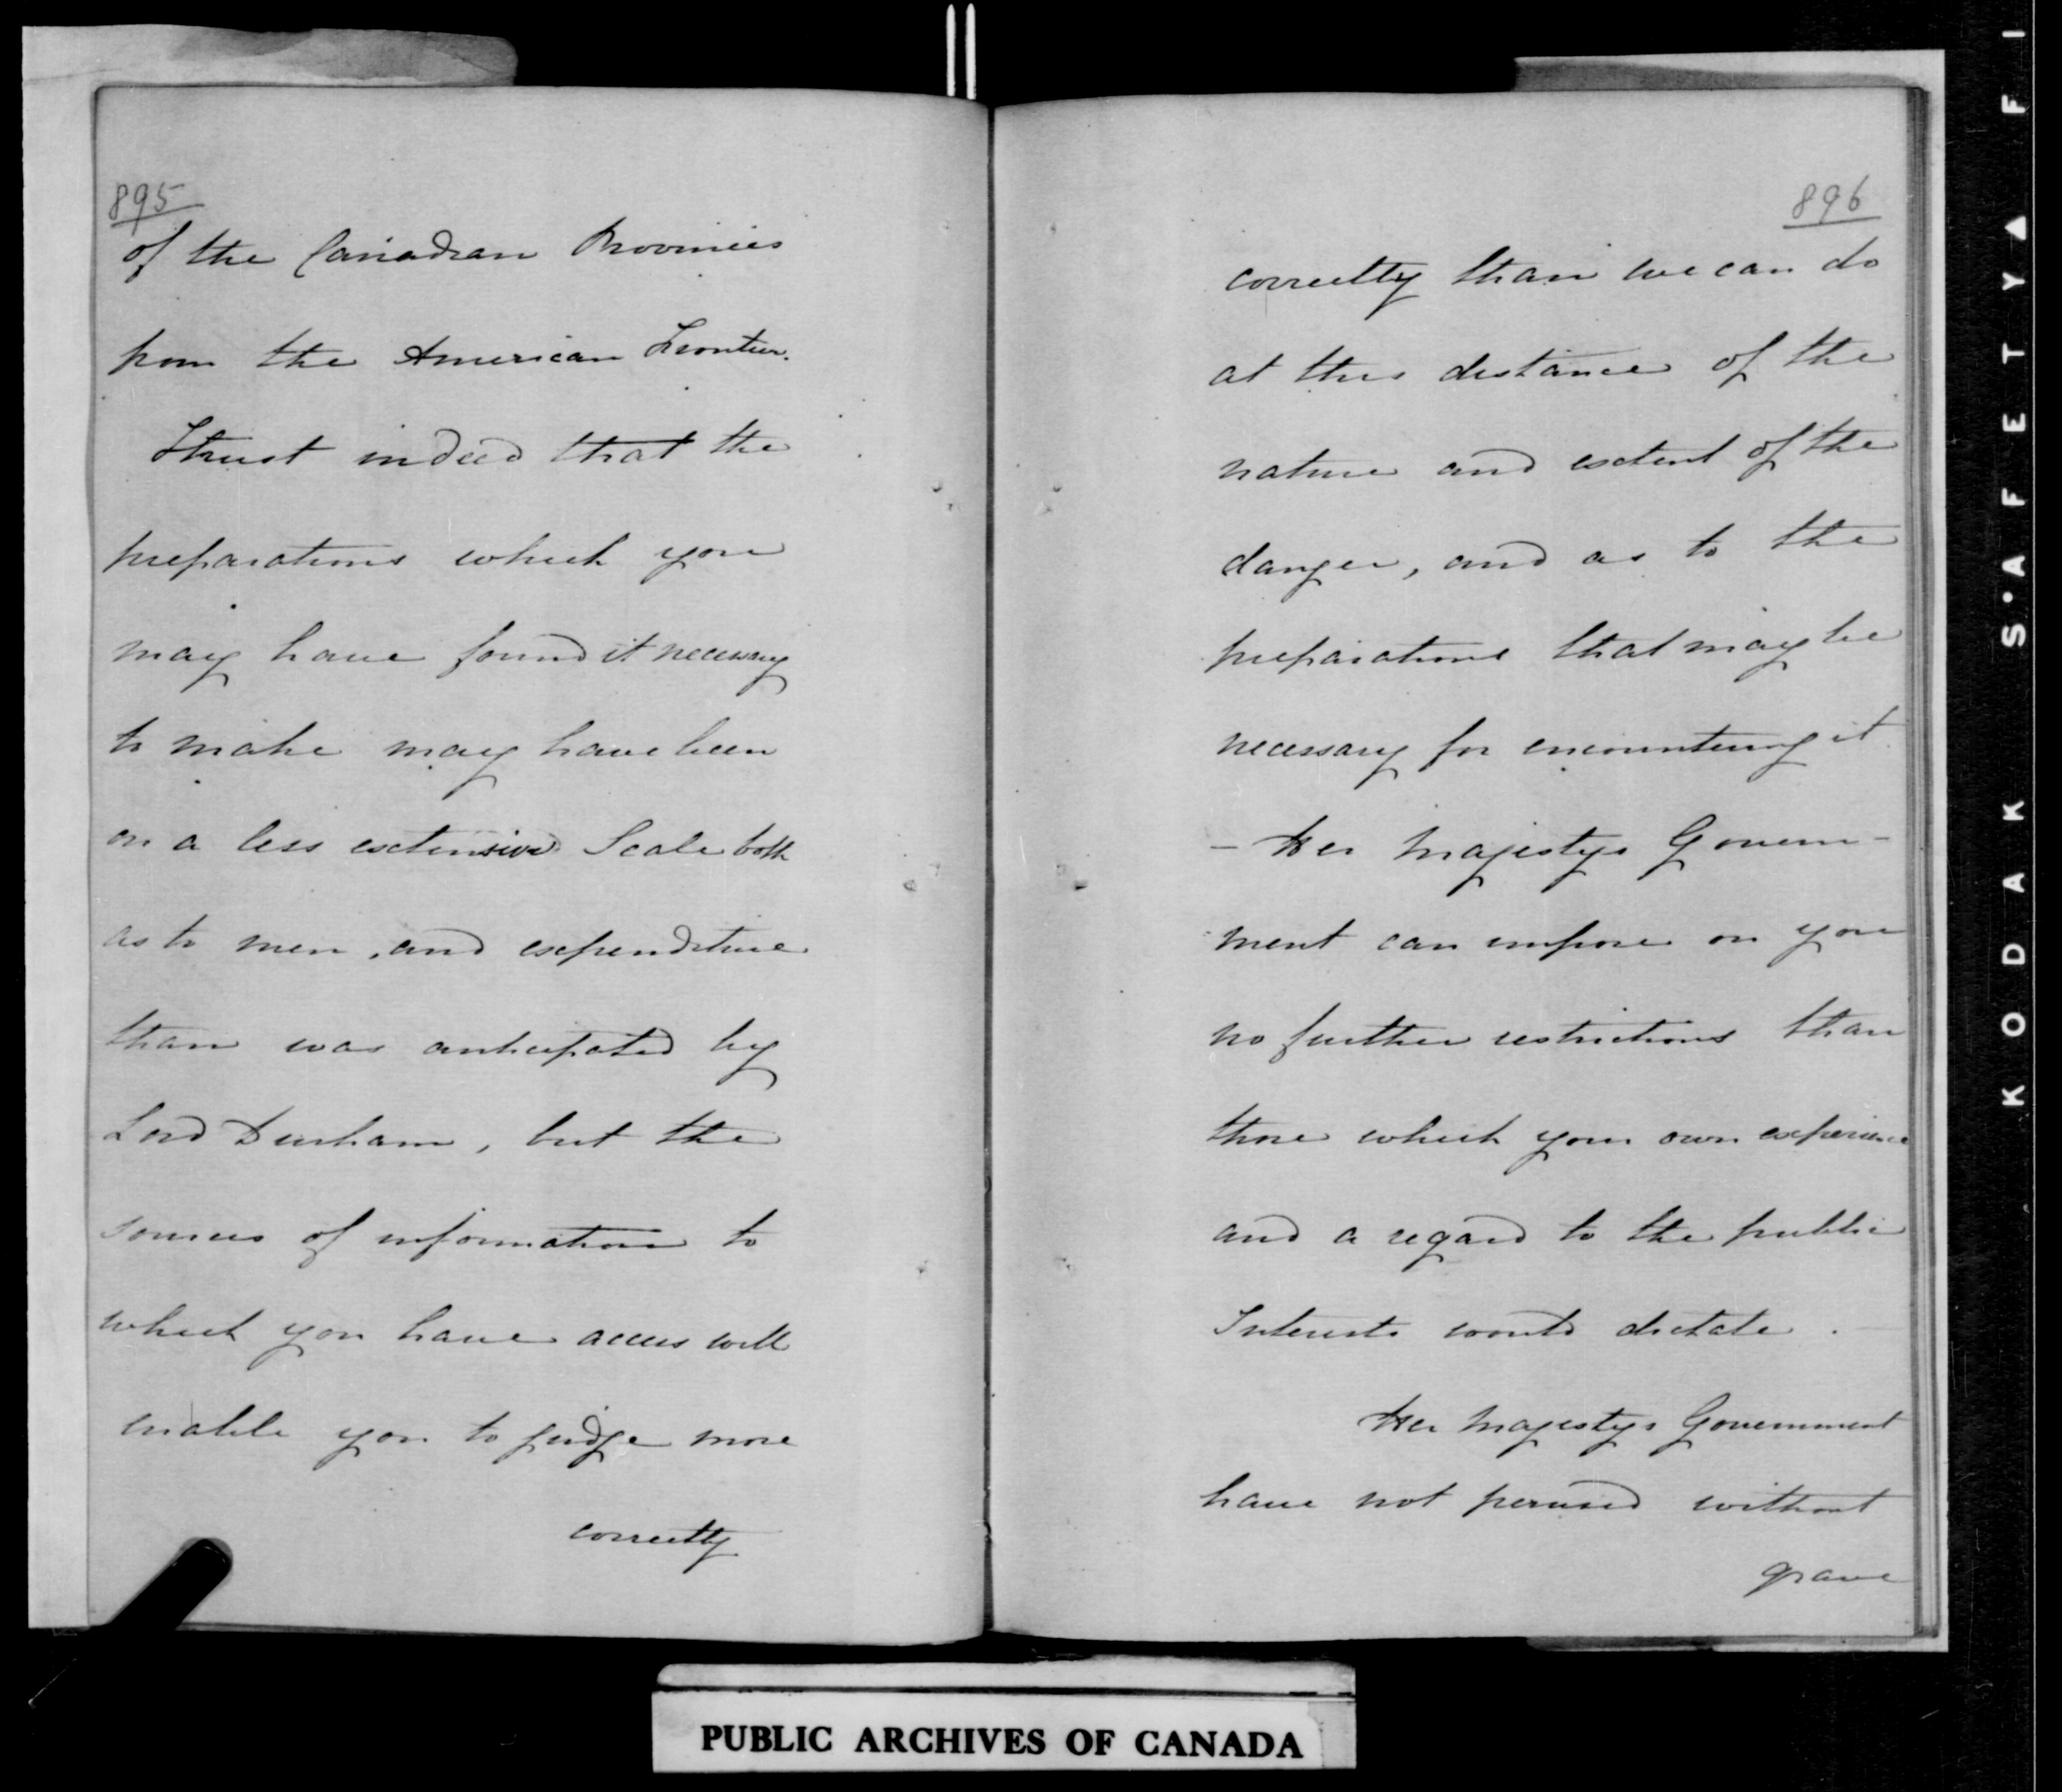 895
of the Canadian Provinces
from the American Frontier.
I trust indeed that the
preparations which you
may have found it necessary
to make may have been
on a less extensive Scale both
as to men, and expenditure
than was anticipated by
Lord Durham, but the
sources of information to
which you have access will
enable you to judge more
correctly
896
correctly than we can do
at this distance of the
nature and extent of the
danger, and as to the
preparations that may be
necessary for encountering it
- Her Majestys Govern-
ment can impose on you
no further restrictions than
those which your own experience
and a regard to the public
Interests would dictate.
Her Majestys Government
have not perused without
grave
PUBLIC ARCHIVES OF CANADA
KODAK S'AFETY▲FI